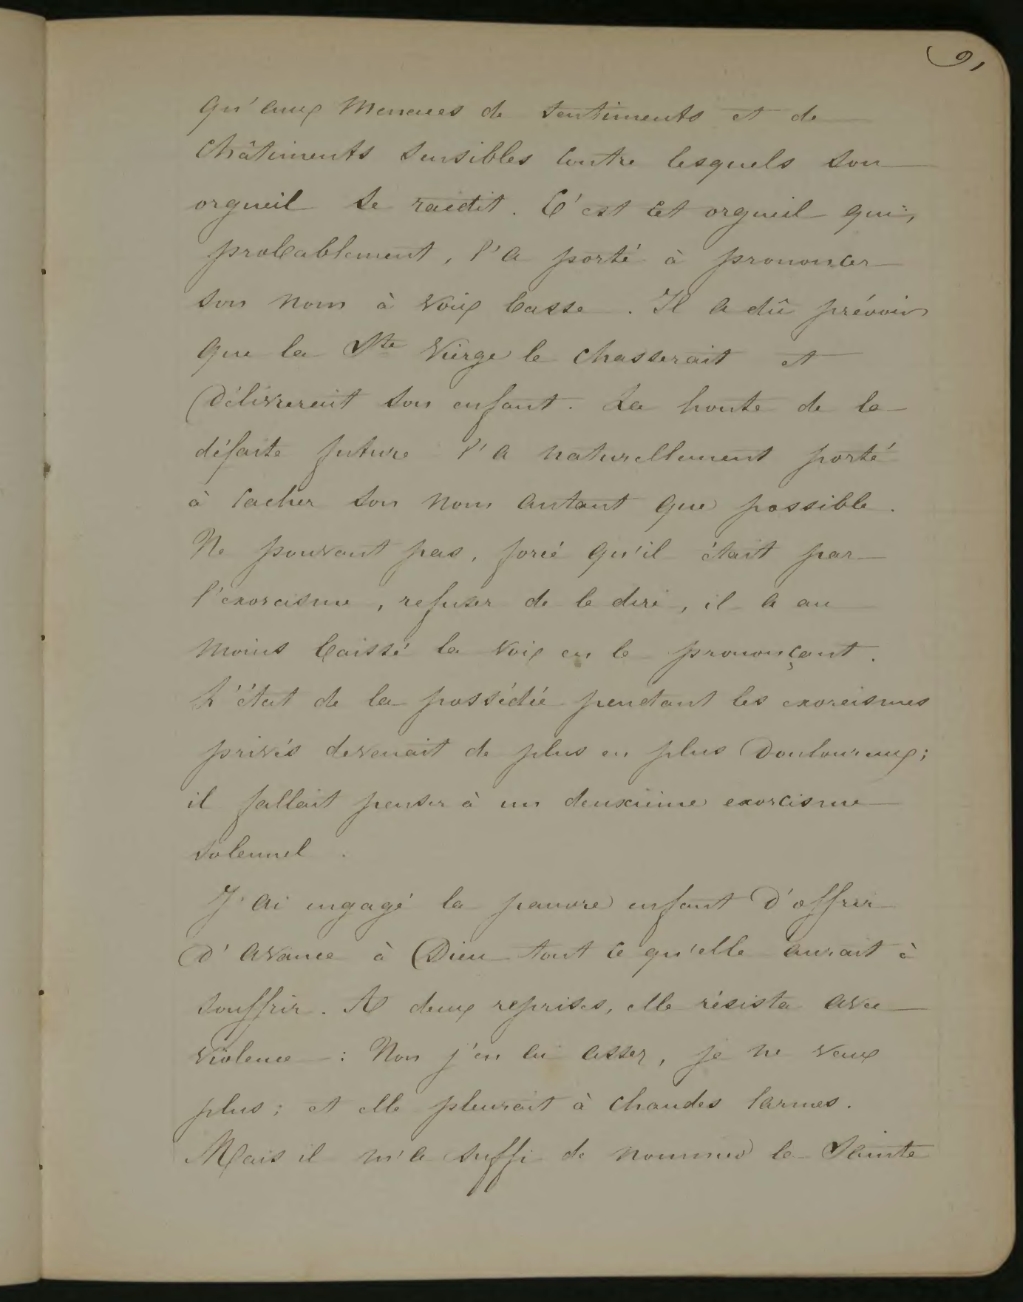 91
qu'aux menaces de sentiments et de
châtiments sensibles contre lesquels son
orgueil se raidit. C'est cet orgueil qui,
probablement, l'a porté à prononcer
son nom à voix basse. Il a dû prévoir
que la Ste Vierge le chasserait et
délivrerait son enfant. La honte de la
défaite future l'a naturellement porté
à cacher son nom autant que possible.
Ne pouvant pas, forcé qu'il était par
l'exorcisme, refuser de le dire, il a au
moins baissé la voix en le prononçant.
L'état de la possédée pendant les exorcismes
privés devenait de plus en plus douloureux;
il fallait penser à un deuxième exorcisme
solennel.
J'ai engagé la pauvre enfant d'offrir
d'avance à Dieu tout ce qu'elle aurait à
souffrir. A deux reprises, elle résista avec
violence : Non j'en ai assez, je ne veux
plus; et elle pleurait à chaudes larmes.
Mais il m'a suffi de nommer la Sainte